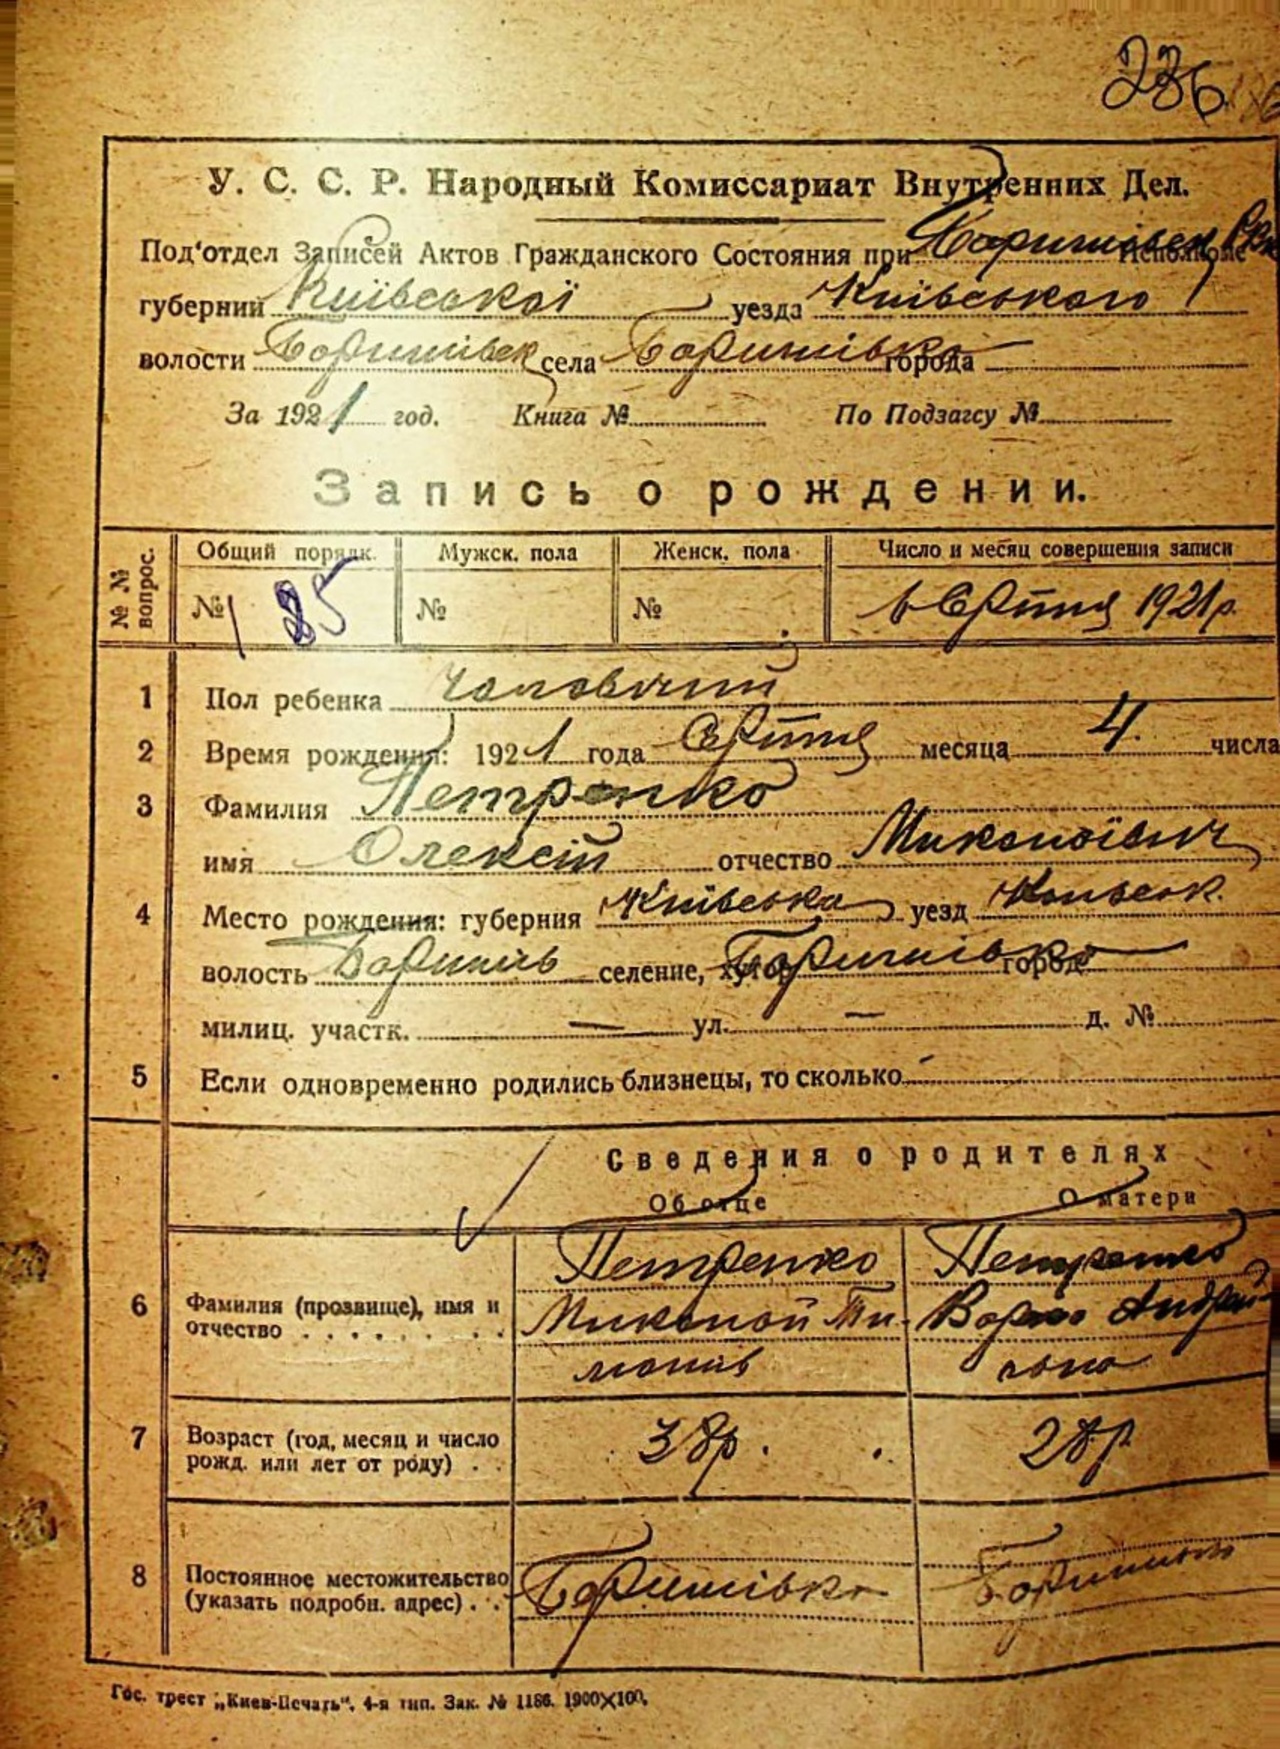 236
У. С. С. Р. Народный Комиссариат Внутренних Дел.
Под'отдел Записей Актов Гражданского Состояния при Исполкоме
губернии Київської уезда Київського
волости Боришпівск села города
За 1921 год. Книга № По Подзагсу №
Запись о рождении.
№№ вопрос. Общий порядк. Мужск. пола Женск. пола Число и месяц совершения записи
№ 185 № № 6 Серпня 1921 р.
1 Пол ребенка Чоловічий
2 Время рождения: 1921 года Серпня месяца 4. числа
3 Фамилия Петренко
имя Олексій отчество Миколаївич
4 Место рождения: губерния Київська уезд Київськ.
волость селение, хутор город
милиц. участк. — ул. — д. №
5 Если одновременно родились близнецы, то сколько
Сведения о родителях
Об отце О матери
6 Фамилия (прозвище), имя и отчество Петренко Петренко
Миколай Ти- Варка Андрії-
монів вна
7 Возраст (год, месяц и число рожд. или лет от роду) 38 р. 28 р.
8 Постоянное местожительство (указать подробн. адрес)
Гос. трест „Киев-Печать“, 4-я тип. Зак. № 1186. 1900×100.